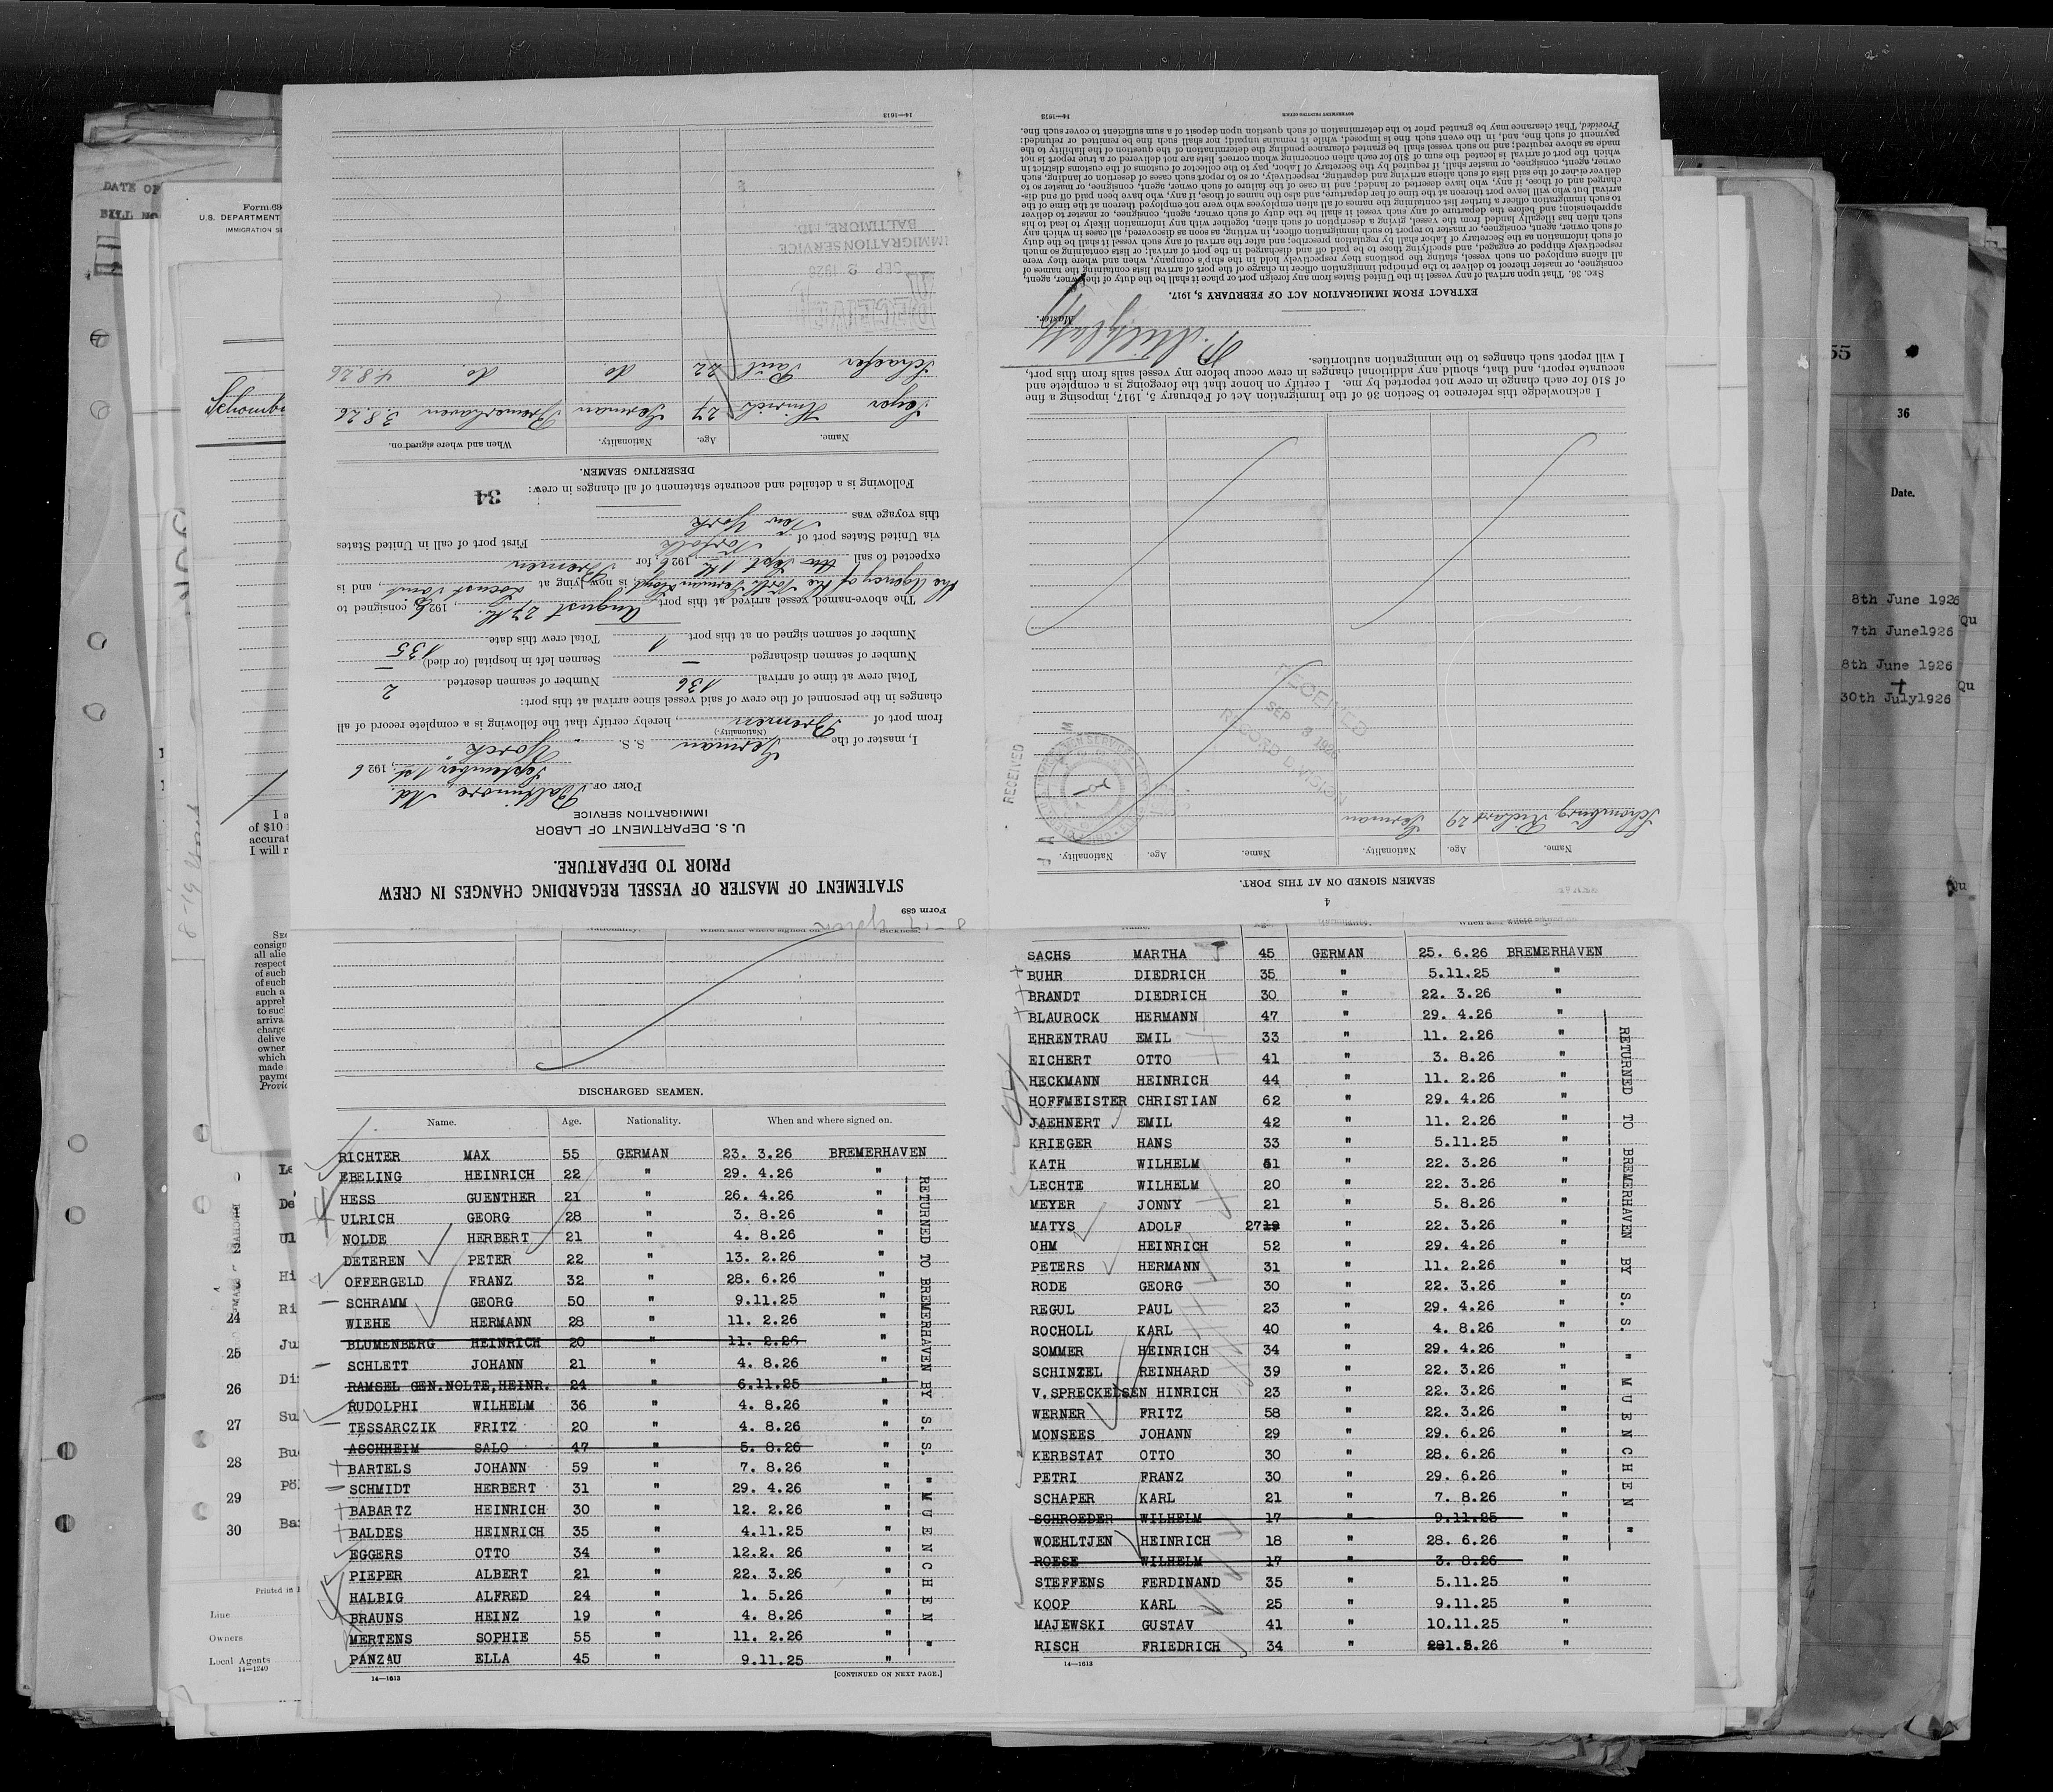 Form 689
STATEMENT OF MASTER OF VESSEL REGARDING CHANGES IN CREW
PRIOR TO DEPARTURE.
U. S. DEPARTMENT OF LABOR
IMMIGRATION SERVICE
PORT OF Baltimore, Md.
September 1st, 1926
I, master of the German S. S. "Yorck"
(Nationality.)
from port of Bremen, hereby certify that the following is a complete record of all
changes in the personnel of the crew of said vessel since arrival at this port:
Total crew at time of arrival 136 Number of seamen deserted 2
Number of seamen discharged — Seamen left in hospital (or died) —
Number of seamen signed on at this port 1 Total crew this date 135
The above-named vessel arrived at this port August 27th, 1926 consigned to
the Agency of the North German Lloyd, is now lying at Locust Point, and is
expected to sail Sept 1st, 1926, for Bremen
via United States port of Norfolk First port of call in United States
this voyage was New York
Following is a detailed and accurate statement of all changes in crew:
34
DESERTING SEAMEN.
Name. Age. Nationality. When and where signed on.
Hinrich 27 German Bremerhaven 3.8.26
Schaefer Paul 22 do do 4.8.26
RECEIVED
SEP 2 1926
IMMIGRATION SERVICE
BALTIMORE, MD.
14—1613
4
SEAMEN SIGNED ON AT THIS PORT.
Name. Age. Nationality. Name. Age. Nationality.
Schomburg Richard 29 German
RECEIVED
SEP 3 1926
RECORD DIVISION
RECEIVED
I acknowledge this reference to Section 36 of the Immigration Act of February 5, 1917, imposing a fine
of $10 for each change in crew not reported by me. I certify on honor that the foregoing is a complete and
accurate report, and that, should any additional changes in crew occur before my vessel sails from this port,
I will report such changes to the immigration authorities.
Master.
EXTRACT FROM IMMIGRATION ACT OF FEBRUARY 5, 1917.
SEC. 36. That upon arrival of any vessel in the United States from any foreign port or place it shall be the duty of the owner, agent,
consignee, or master thereof to deliver to the principal immigration officer in charge of the port of arrival lists containing the names of
all aliens employed on such vessel, stating the positions they respectively hold in the ship's company, when and where they were
respectively shipped or engaged, and specifying those to be paid off and discharged in the port of arrival; or lists containing so much
of such information as the Secretary of Labor shall by regulation prescribe; and after the arrival of any such vessel it shall be the duty
of such owner, agent, consignee, or master to report to such immigration officer, in writing, as soon as discovered, all cases in which any
such alien has illegally landed from the vessel, giving a description of such alien, together with any information likely to lead to his
apprehension; and before the departure of any such vessel it shall be the duty of such owner, agent, consignee, or master to deliver
to such immigration officer a further list containing the names of all alien employees who were not employed thereon at the time of the
arrival but who will leave port thereon at the time of her departure, and also the names of those, if any, who have been paid off and dis-
charged and of those, if any, who have deserted or landed; and in case of the failure of such owner, agent, consignee, or master so to
deliver either of the said lists of such aliens arriving and departing, respectively, or so to report such cases of desertion or landing, such
owner, agent, consignee, or master shall, if required by the Secretary of Labor, pay to the collector of customs of the customs district in
which the port of arrival is located the sum of $10 for each alien concerning whom correct lists are not delivered or a true report is not
made as above required; and no such vessel shall be granted clearance pending the determination of the question of the liability to the
payment of such fine, and, in the event such fine is imposed, while it remains unpaid; nor shall such fine be remitted or refunded:
Provided, That clearance may be granted prior to the determination of such question upon deposit of a sum sufficient to cover such fine.
GOVERNMENT PRINTING OFFICE 14—1613
DISCHARGED SEAMEN.
Name. Age. Nationality. When and where signed on.
RICHTER MAX 55 GERMAN 23. 3.26 BREMERHAVEN
EBELING HEINRICH 22 " 29. 4.26 "
HESS GUENTHER 21 " 26. 4.26 "
ULRICH GEORG 28 " 3. 8.26 "
NOLDE HERBERT 21 " 4. 8.26 "
DETEREN PETER 22 " 13. 2.26 "
OFFERGELD FRANZ 32 " 28. 6.26 "
SCHRAMM GEORG 50 " 9.11.25 "
WIEHE HERMANN 28 " 11. 2.26 "
BLUMENBERG HEINRICH 20 " 11. 2.26 "
SCHLETT JOHANN 21 " 4. 8.26 "
RAMSEL GEN.NOLTE,HEINR. 24 " 6.11.25 "
RUDOLPHI WILHELM 36 " 4. 8.26 "
TESSARCZIK FRITZ 20 " 4. 8.26 "
ASCHHEIM SALO 47 " 5. 8.26 "
BARTELS JOHANN 59 " 7. 8.26 "
SCHMIDT HERBERT 31 " 29. 4.26 "
BABARTZ HEINRICH 30 " 12. 2.26 "
BALDES HEINRICH 35 " 4.11.25 "
EGGERS OTTO 34 " 12.2. 26 "
PIEPER ALBERT 21 " 22. 3.26 "
HALBIG ALFRED 24 " 1. 5.26 "
BRAUNS HEINZ 19 " 4. 8.26 "
MERTENS SOPHIE 55 " 11. 2.26 "
PANZAU ELLA 45 " 9.11.25 "
RETURNED TO BREMERHAVEN BY S. S. "MUENCHEN"
14—1613 [CONTINUED ON NEXT PAGE.]
SACHS MARTHA 45 GERMAN 25. 6.26 BREMERHAVEN
BUHR DIEDRICH 35 " 5.11.25 "
BRANDT DIEDRICH 30 " 22. 3.26 "
BLAUROCK HERMANN 47 " 29. 4.26 "
EHRENTRAU EMIL 33 " 11. 2.26 "
EICHERT OTTO 41 " 3. 8.26 "
HECKMANN HEINRICH 44 " 11. 2.26 "
HOFFMEISTER CHRISTIAN 62 " 29. 4.26 "
JAEHNERT EMIL 42 " 11. 2.26 "
KRIEGER HANS 33 " 5.11.25 "
KATH WILHELM 51 " 22. 3.26 "
LECHTE WILHELM 20 " 22. 3.26 "
MEYER JONNY 21 " 5. 8.26 "
MATYS ADOLF 27 " 22. 3.26 "
OHM HEINRICH 52 " 29. 4.26 "
PETERS HERMANN 31 " 11. 2.26 "
RODE GEORG 30 " 22. 3.26 "
REGUL PAUL 23 " 29. 4.26 "
ROCHOLL KARL 40 " 4. 8.26 "
SOMMER HEINRICH 34 " 29. 4.26 "
SCHINZEL REINHARD 39 " 22. 3.26 "
V.SPRECKELSEN HINRICH 23 " 22. 3.26 "
WERNER FRITZ 58 " 22. 3.26 "
MONSEES JOHANN 29 " 29. 6.26 "
KERBSTAT OTTO 30 " 28. 6.26 "
PETRI FRANZ 30 " 29. 6.26 "
SCHAPER KARL 21 " 7. 8.26 "
SCHROEDER WILHELM 17 " 9.11.25 "
WOEHLTJEN HEINRICH 18 " 28. 6.26 "
ROESE WILHELM 17 " 3. 8.26 "
STEFFENS FERDINAND 35 " 5.11.25 "
KOOP KARL 25 " 9.11.25 "
MAJEWSKI GUSTAV 41 " 10.11.25 "
RISCH FRIEDRICH 34 " "
RETURNED TO BREMERHAVEN BY S.S. "MUENCHEN"
14—1613
DATE OF
Form 68
U.S. DEPARTMENT
IMMIGRATION SE
Schombu
of $10
accurat
I will r
24
25
26
27
28
29
30
Line
Owners
Local Agents
14—1240
Printed in
55
36
Date.
8th June 1926
7th June1926
8th June 1926
30th July1926
Qu
Qu